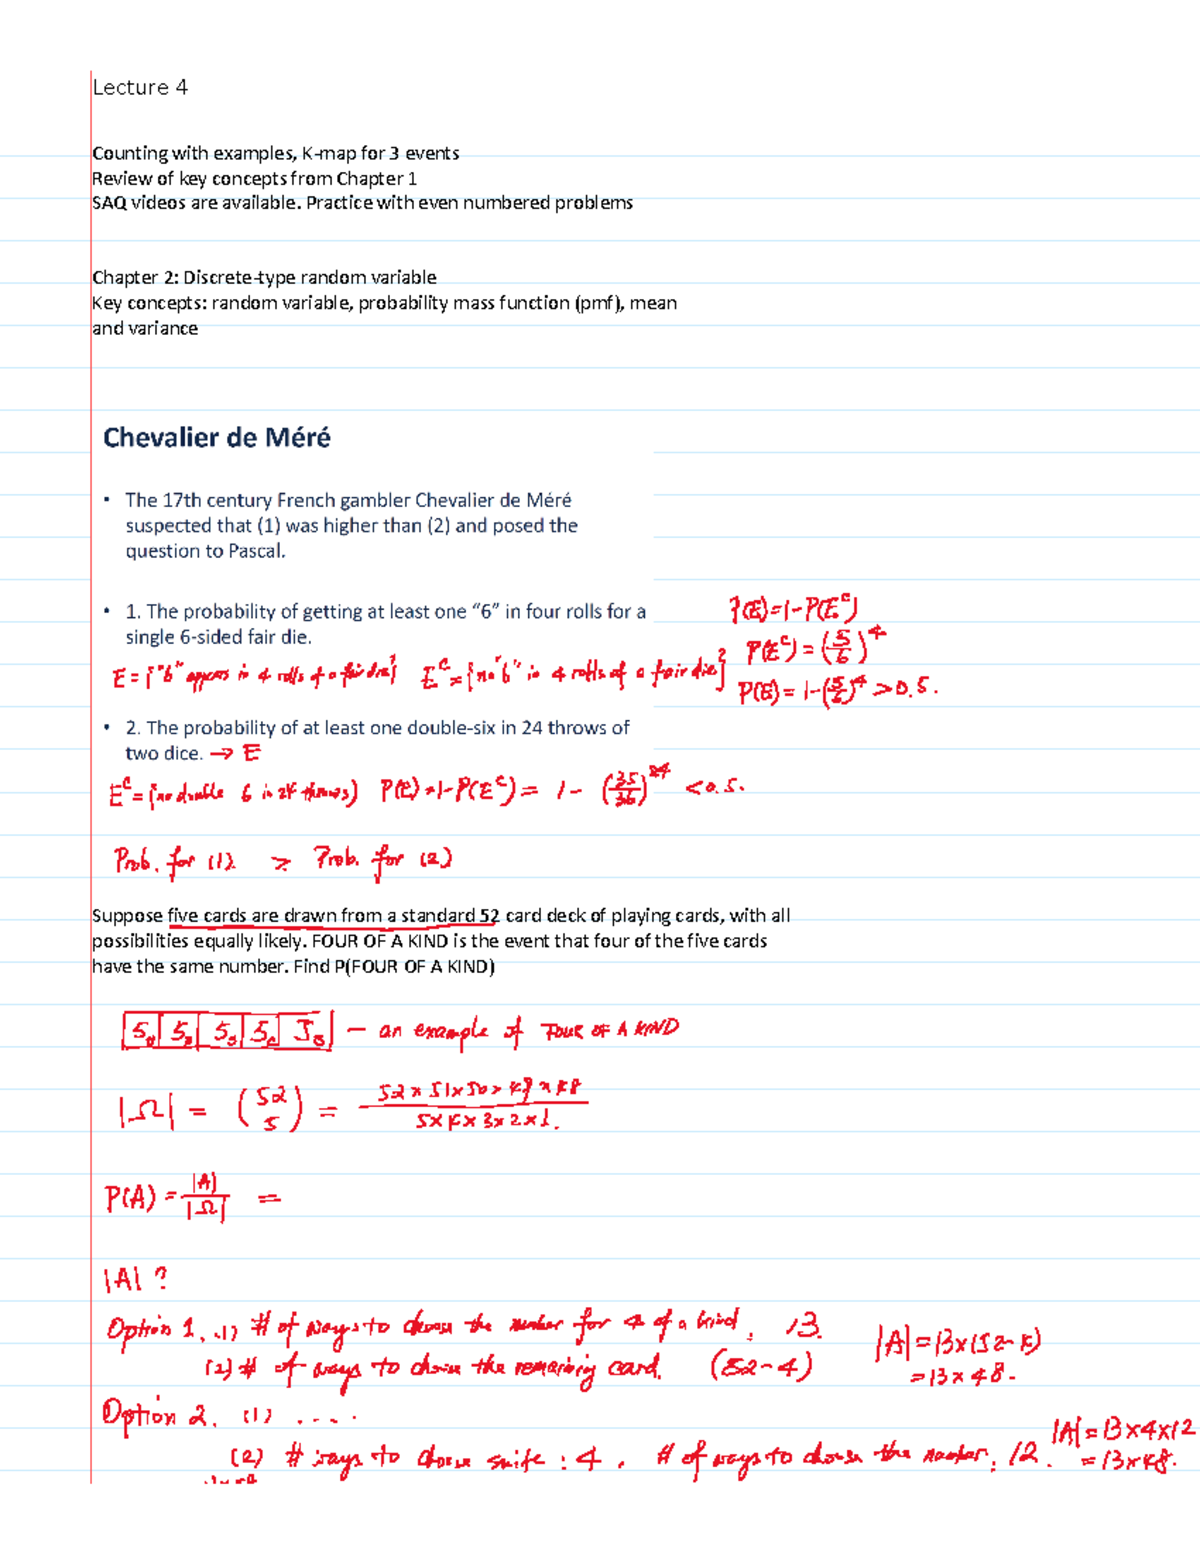 Lecture 4
Counting with examples, K-map for 3 events
Review of key concepts from Chapter 1
SAQ videos are available. Practice with even numbered problems
Chapter 2: Discrete-type random variable
Key concepts: random variable, probability mass function (pmf), mean
and variance
Chevalier de Méré
• The 17th century French gambler Chevalier de Méré
suspected that (1) was higher than (2) and posed the
question to Pascal.
• 1. The probability of getting at least one “6” in four rolls for a
single 6-sided fair die.
P(E)=1-P(E^c)
P(E^c) = (5/6)^4
E = {"6" appears in 4 rolls of a fair die} E^c = {no "6" in 4 rolls of a fair die}
P(E) = 1-(5/6)^4 > 0.5.
• 2. The probability of at least one double-six in 24 throws of
two dice. → E
E^c = {no double 6 in 24 throws} P(E) = 1-P(E^c) = 1 - (35/36)^24 < 0.5.
Prob. for (1) > Prob. for (2)
Suppose five cards are drawn from a standard 52 card deck of playing cards, with all
possibilities equally likely. FOUR OF A KIND is the event that four of the five cards
have the same number. Find P(FOUR OF A KIND)
— an example of FOUR OF A KIND
|Ω| = (52 5) = 52×51×50×49×48 / 5×4×3×2×1.
P(A) = |A| / |Ω| =
|A| ?
Option 1. (1) # of ways to choose the number for 4 of a kind, 13.
|A| = 13×(52-4)
(2) # of ways to choose the remaining card. (52-4)
= 13×48.
Option 2. (1) ....
|A| = 13×4×12
(2) # ways to choose suite : 4, # of ways to choose the number: 12.
= 13×48.